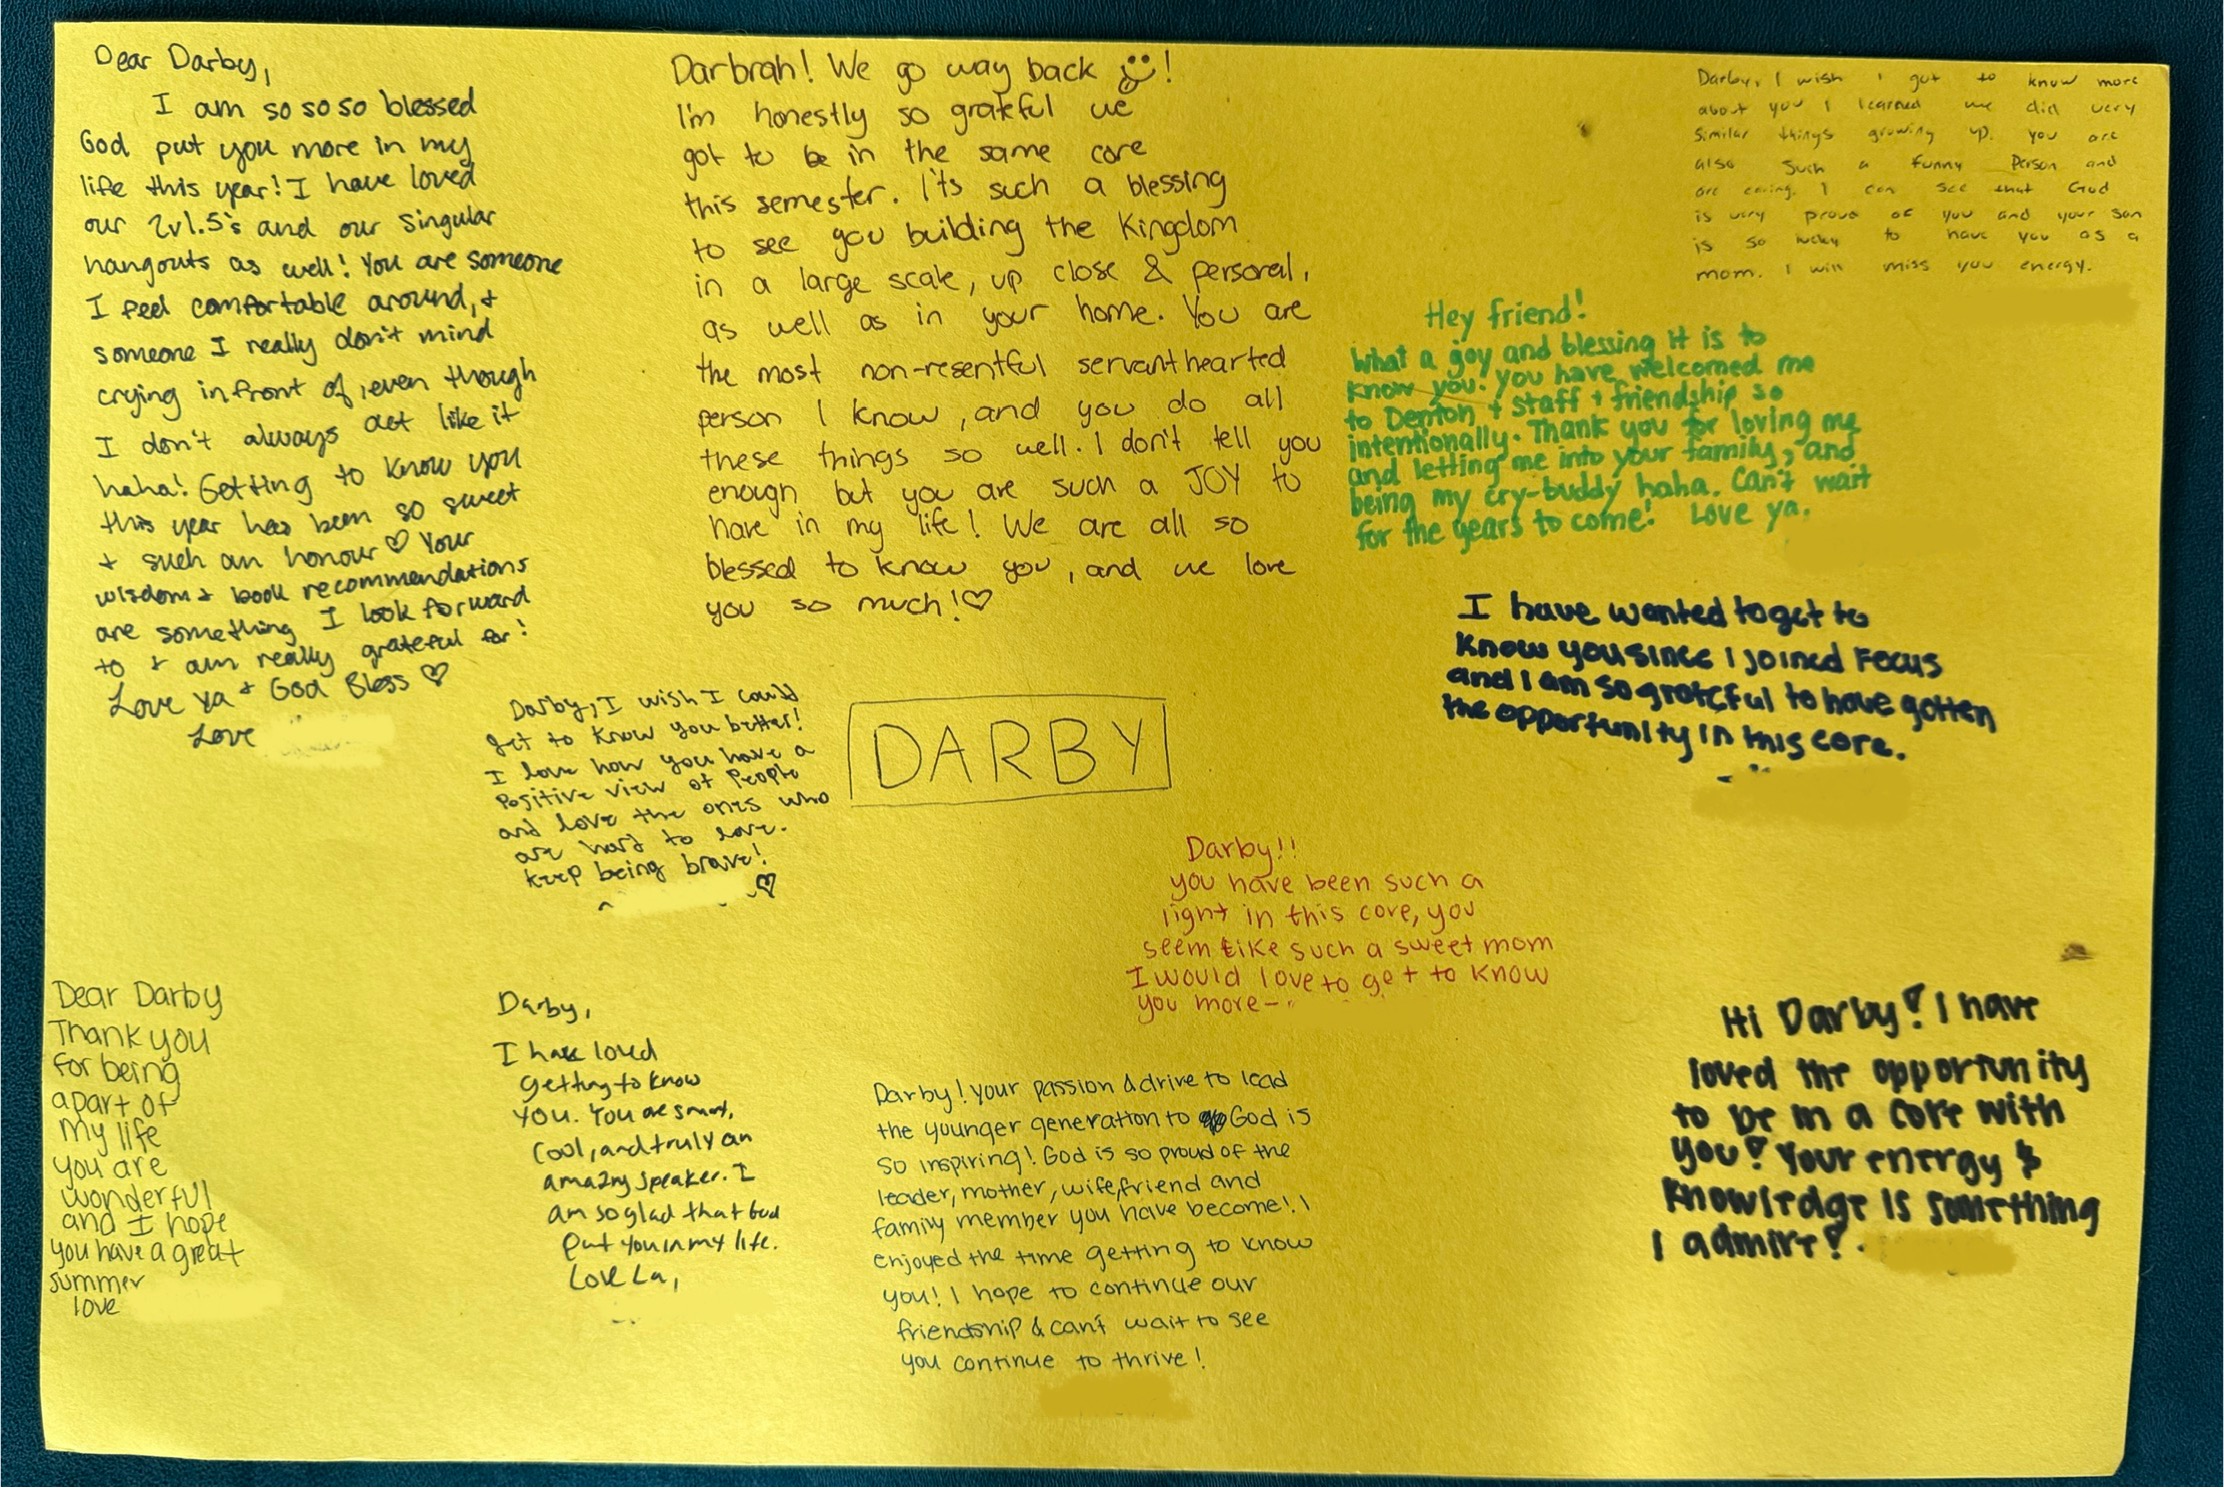 Dear Darby,
I am so so so blessed
God put you more in my
life this year! I have loved
our 2v1.5's and our singular
hangouts as well! You are someone
I feel comfortable around, +
someone I really don't mind
crying infront of, even though
I don't always act like it
haha! Getting to know you
this year has been so sweet
+ such an honour ♡ Your
wisdom + book recommendations
are something I look forward
to + am really grateful for!
Love ya + God Bless ♡
Love
Darbrah! We go way back !
I'm honestly so grateful we
got to be in the same core
this semester. It's such a blessing
to see you building the Kingdom
in a large scale, up close & personal,
as well as in your home. You are
the most non-resentful servant hearted
person I know, and you do all
these things so well. I don't tell you
enough but you are such a JOY to
have in my life! We are all so
blessed to know you, and we love
you so much! ♡
Darby, I wish I got to know more
about you I learned we did very
similar things growing up. you are
also such a funny person and
are caring. I can see that God
is very proud of you and your son
is so lucky to have you as a
mom. I will miss you energy.
Hey friend!
What a joy and blessing it is to
know you. you have welcomed me
to Denton + staff + friendship so
intentionally. Thank you for loving me
and letting me into your family, and
being my cry-buddy haha. Can't wait
for the years to come! Love ya.
I have wanted to get to
know you since I joined Focus
and I am so grateful to have gotten
the opportunity in this core.
Darby, I wish I could
get to know you better!
I love how you have a
positive view of people
and love the ones who
are hard to love.
keep being brave!
♡
DARBY
Darby!!
you have been such a
light in this core, you
seem like such a sweet mom
I would love to get to know
you more-
Dear Darby
Thank you
for being
apart of
my life
you are
wonderful
and I hope
you have a great
summer
love
Darby,
I have loved
getting to know
you. You are smart,
cool, and truly an
amazing speaker. I
am so glad that God
put you in my life.
Love Ya,
Darby! your passion & drive to lead
the younger generation to God is
so inspiring! God is so proud of the
leader, mother, wife, friend and
family member you have become! I
enjoyed the time getting to know
you! I hope to continue our
friendship & can't wait to see
you continue to thrive!
Hi Darby! I have
loved the opportunity
to be in a core with
you! Your energy &
knowledge is something
I admire!